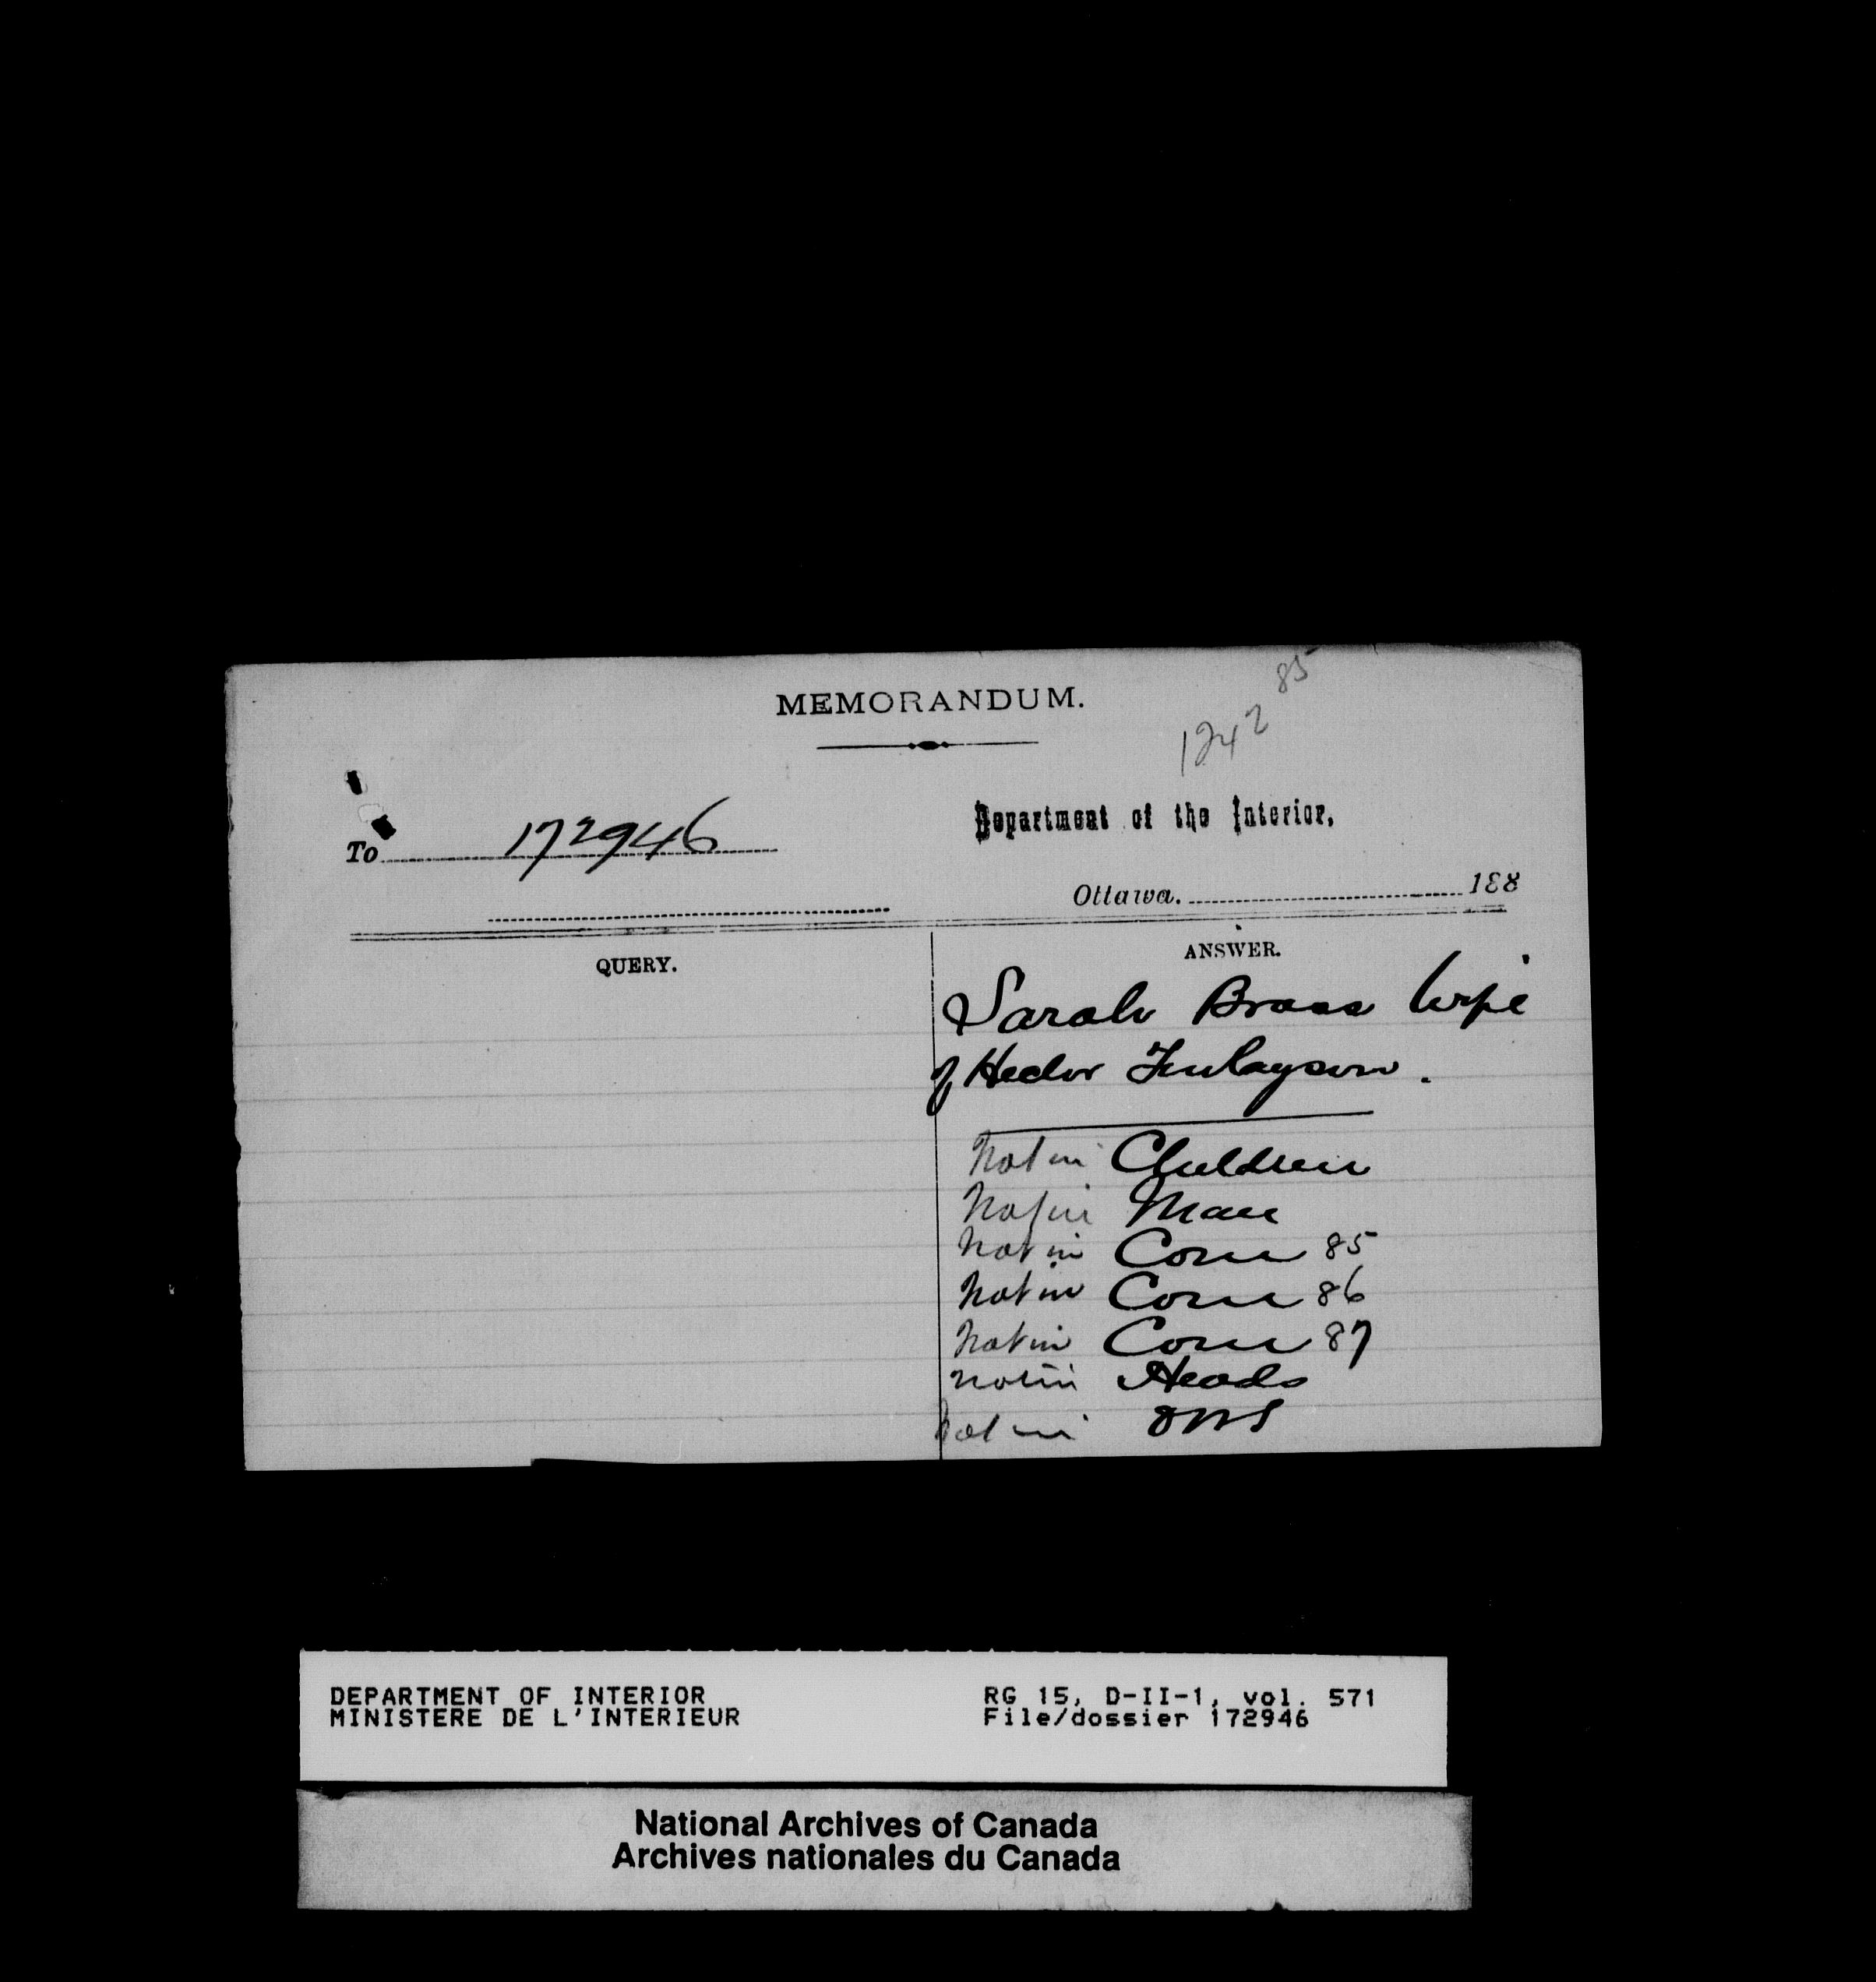 85
1242
MEMORANDUM.
To 172946
Department of the Interior,
Ottawa. 188
QUERY.
ANSWER.
Sarah Brass wife
of Hector Finlayson.
Not in Children
Not in Man
Not in Com 85
Not in Com 86
Not in Com 87
Not in Heads
Not in
DEPARTMENT OF INTERIOR
MINISTERE DE L'INTERIEUR
RG 15, D-II-1, vol. 571
File/dossier 172946
National Archives of Canada
Archives nationales du Canada